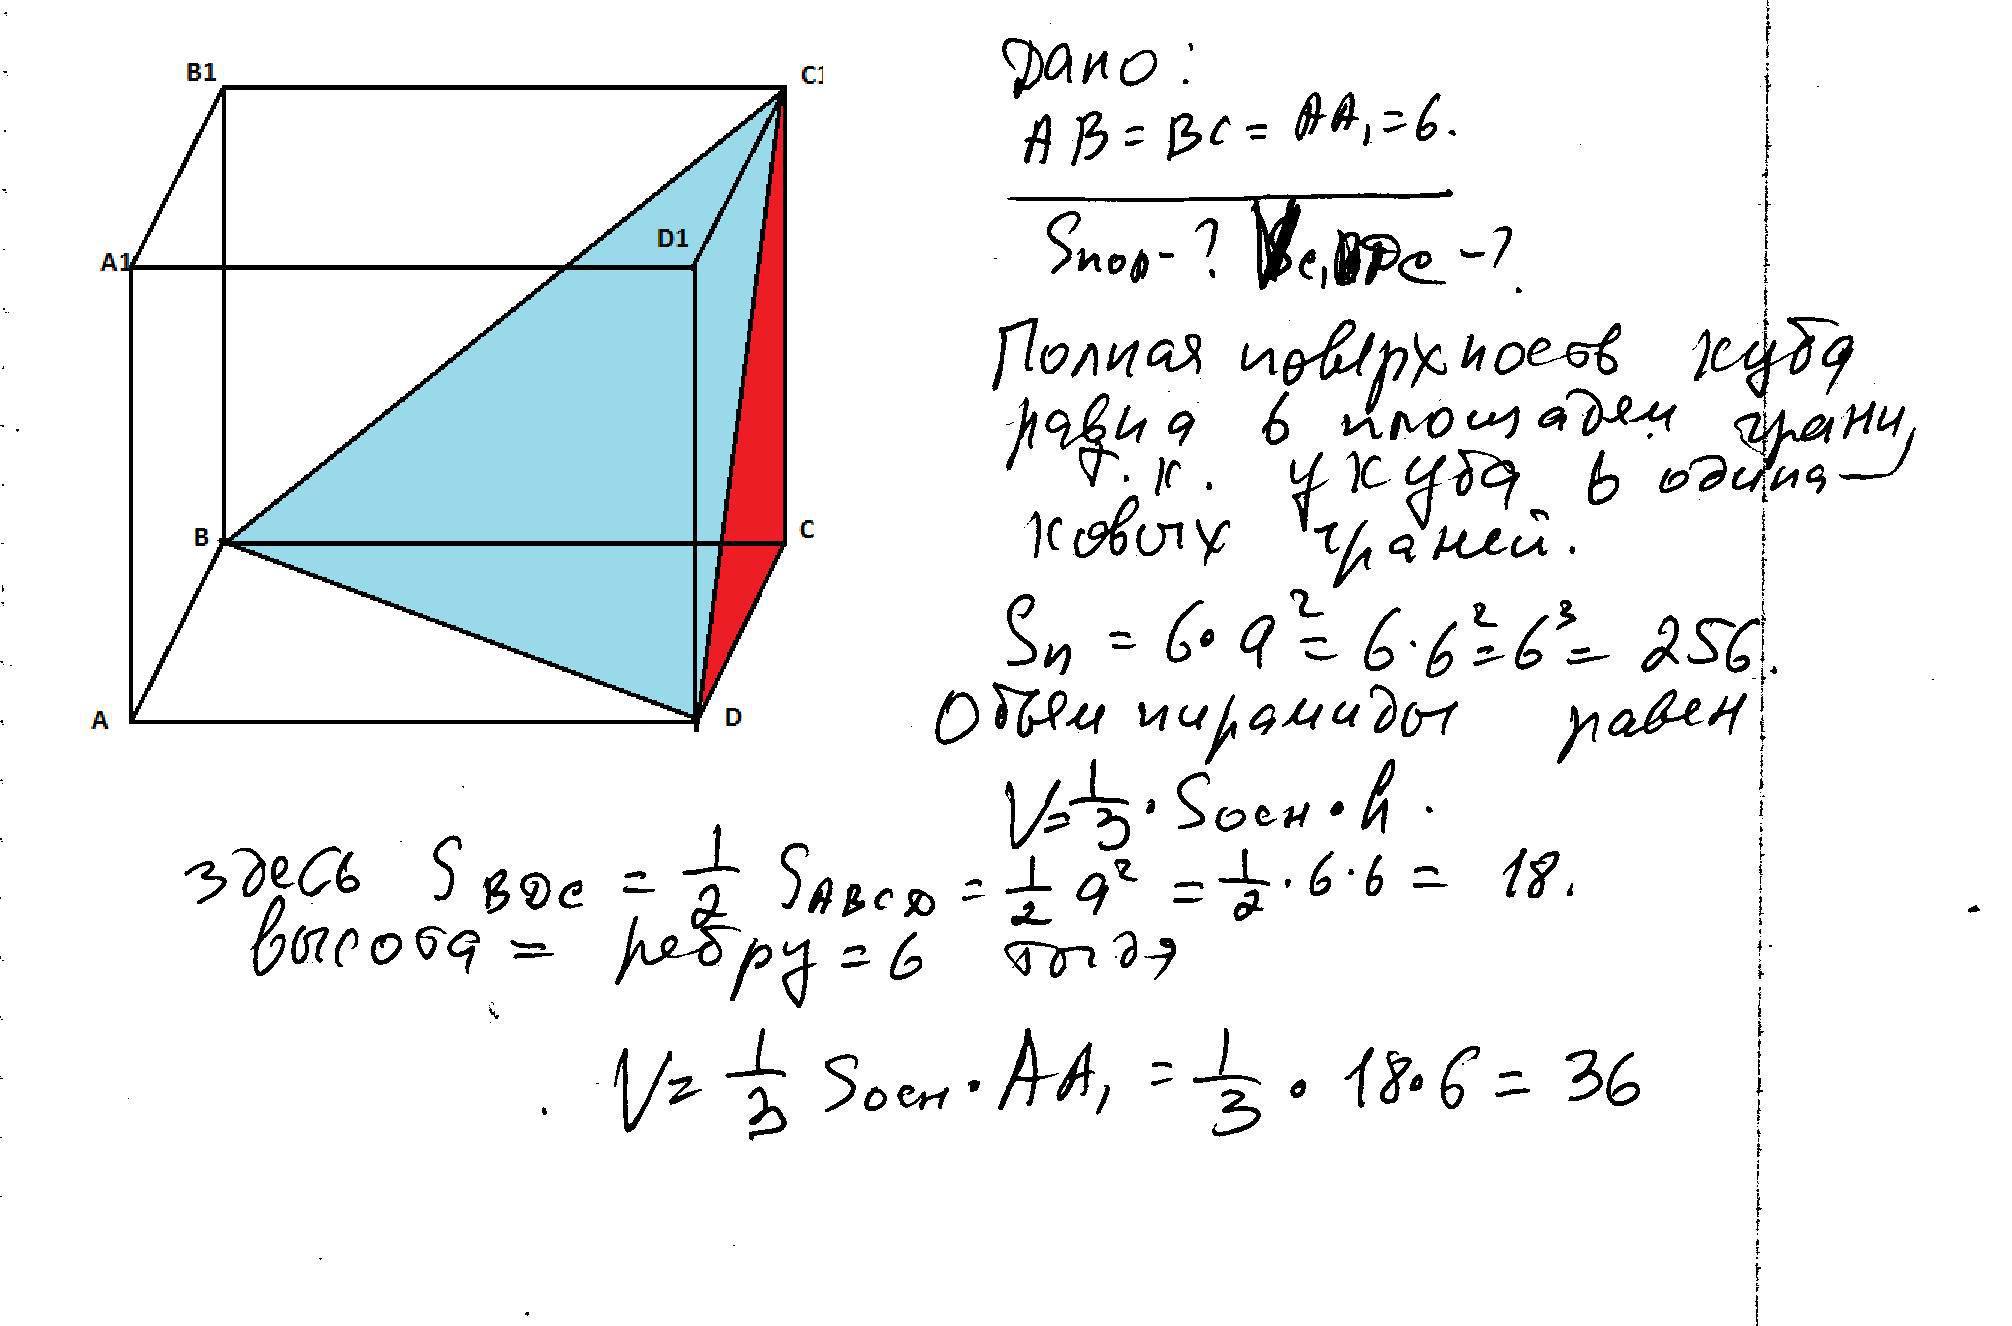 B1
C1
D1
A1
B
C
A
D
Дано:
AB = BC = AA₁ = 6.
Sпол - ? V C₁BDC - ?
Полная поверхность куба
равна 6 площадям грани,
т.к. у куба 6 одина-
ковых граней.
Sп = 6 · a² = 6 · 6² = 6³ = 256.
Объем пирамиды равен
V = 1/3 · Sосн · h.
здесь S BDC = 1/2 S ABCD = 1/2 a² = 1/2 · 6 · 6 = 18.
высота = ребру = 6
V = 1/3 Sосн · AA₁ = 1/3 · 18 · 6 = 36